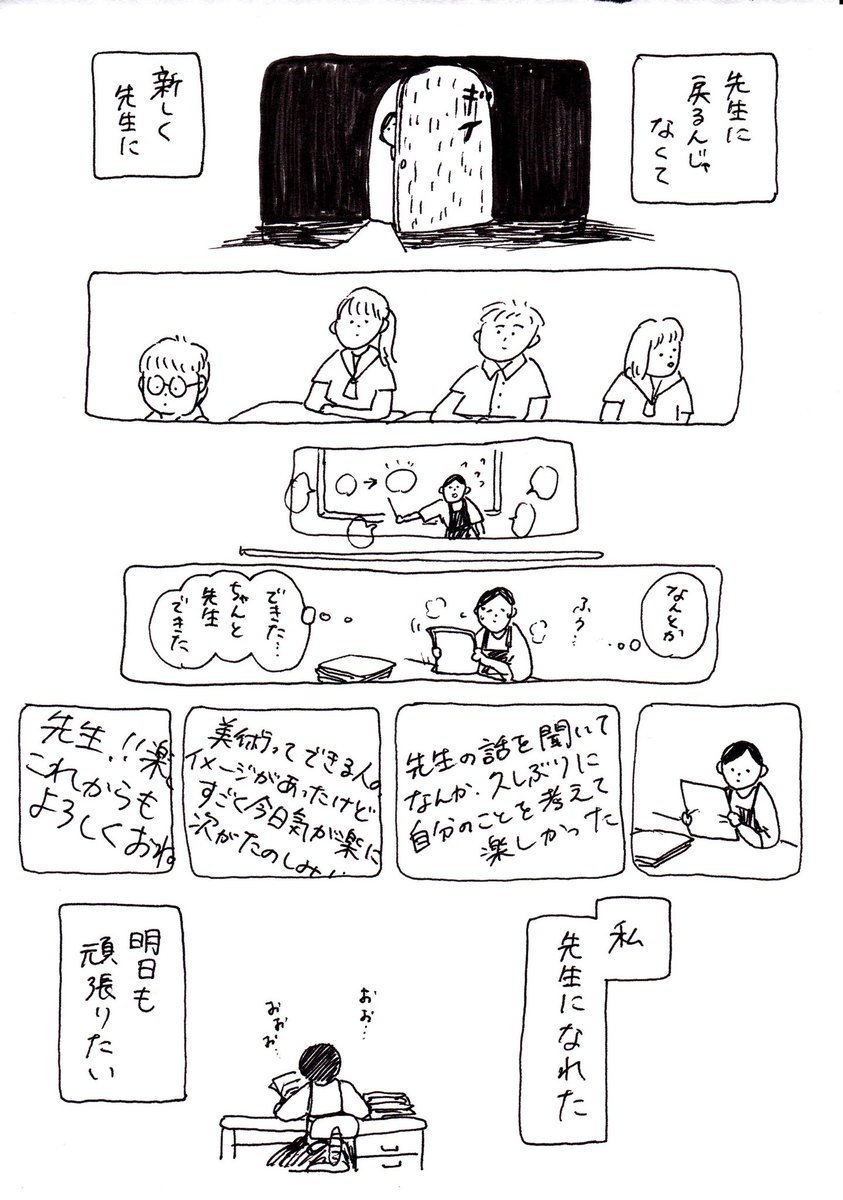 先生に
戻るんじゃ
なくて
ギイ
新しく
先生に
なんとか
ふぅ…
できた…
ちゃんと
先生
できた
先生の話を聞いて
なんか、久しぶりに
自分のことを考えて
楽しかった
美術ってできる人の
イメージがあったけど
すごく今日気が楽に
次がたのしみ
先生!!楽
これからも
よろしくおね
私
先生になれた
おぉ…
おぉお…
明日も
頑張りたい